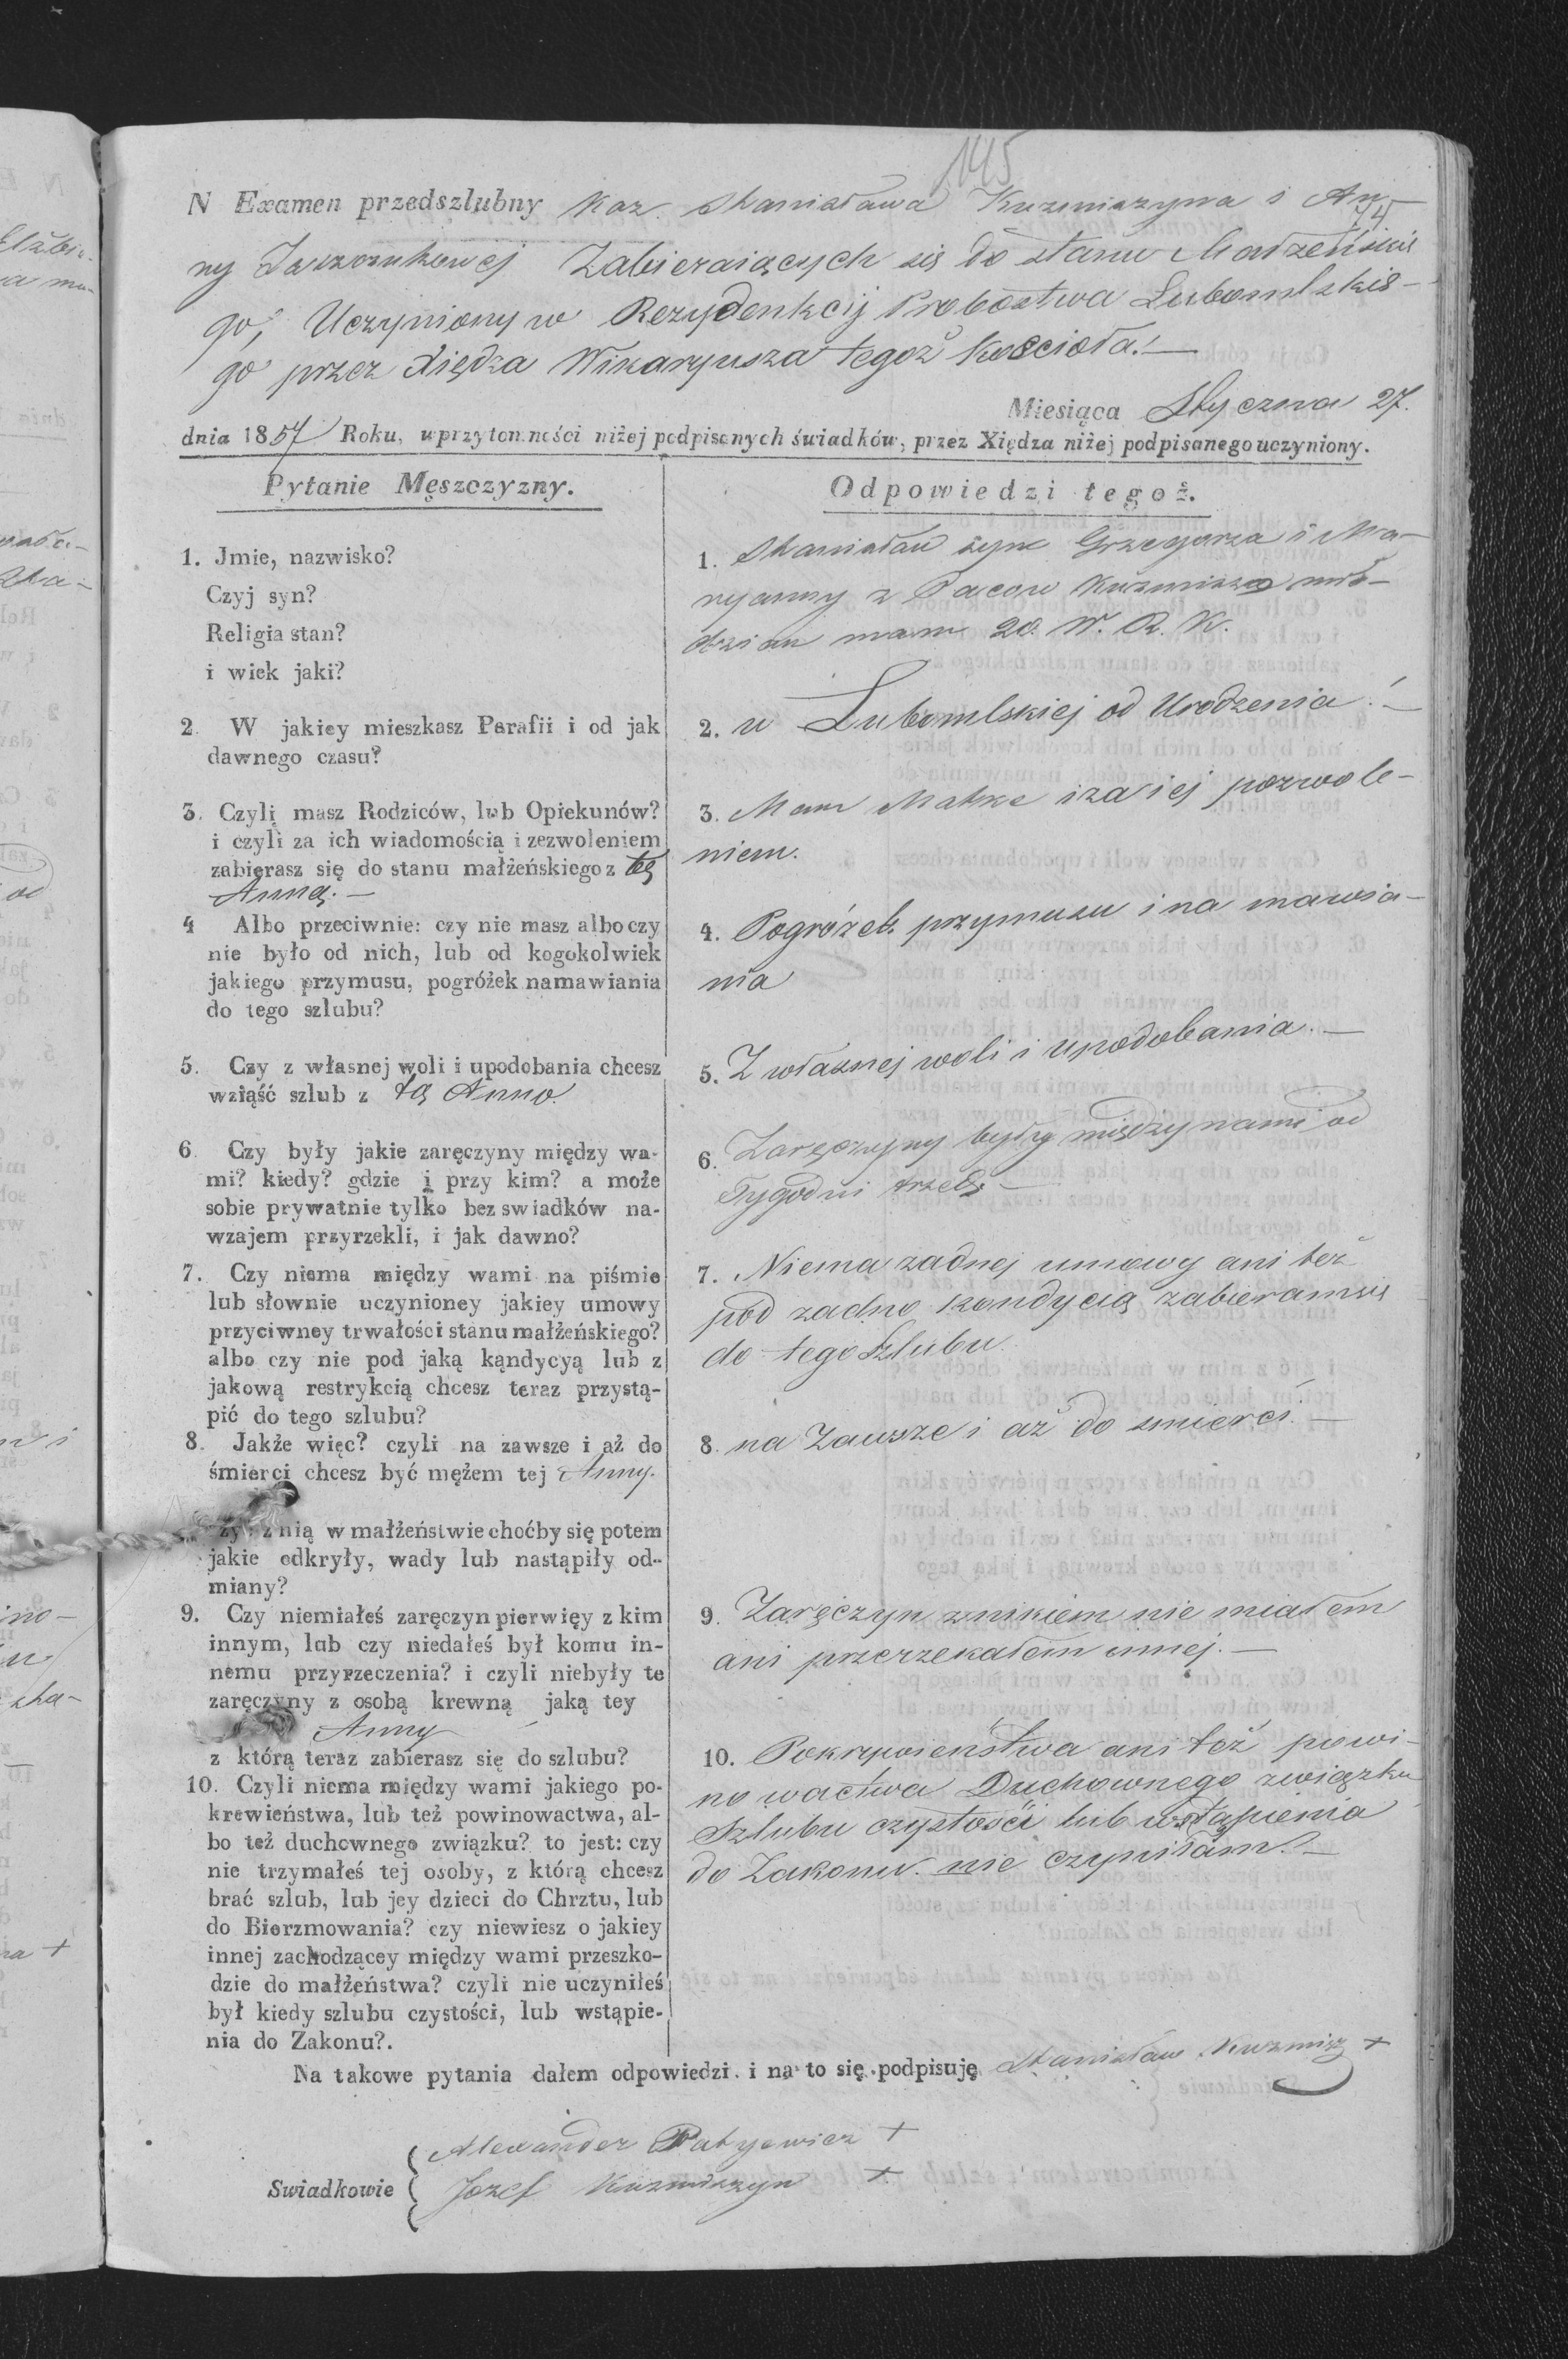 145
74
N Examen przedszlubny Kaz. Stanisława Kuzmiszyna i An-
ny Zabieraiących się do stanu Małżeńskie
go, Uczyniony w Rezydenkcij Probostwa Lubomlskie-
go przez Xiędza Wikaryusza tegoż Kościoła.—
Miesiąca Stycznia 27.
dnia 1857 Roku, w przytomności niżej podpisanych świadków, przez Xiędza niżej podpisanego uczyniony.
Pytanie Męszczyzny.
1. Jmie, nazwisko?
Czyj syn?
Religia stan?
i wiek jaki?
2. W jakiey mieszkasz Parafii i od jak
dawnego czasu?
3. Czyli masz Rodziców, lub Opiekunów?
i czyli za ich wiadomością i zezwoleniem
zabierasz się do stanu małżeńskiego z tą
Anną.—
4 Albo przeciwnie: czy nie masz albo czy
nie było od nich, lub od kogokolwiek
jakiego przymusu, pogróżek namawiania
do tego szlubu?
5. Czy z własnej woli i upodobania chcesz
wziąść szlub z tą Anno.
6. Czy były jakie zaręczyny między wa-
mi? kiedy? gdzie i przy kim? a może
sobie prywatnie tylko bez swiadków na-
wzajem przyrzekli, i jak dawno?
7. Czy niema między wami na piśmie
lub słownie uczynioney jakiey umowy
przyciwney trwałości stanu małżeńskiego?
albo czy nie pod jaką kąndycyą lub z
jakową restrykcią chcesz teraz przystą-
pić do tego szlubu?
8. Jakże więc? czyli na zawsze i aż do
śmierci chcesz być mężem tej Anny.
żyć z nią w małżeństwie choćby się potem
jakie odkryły, wady lub nastąpiły od-
miany?
9. Czy niemiałeś zaręczyn pierwięy z kim
innym, lub czy niedałeś był komu in-
nemu przyrzeczenia? i czyli niebyły te
zaręczyny z osobą krewną jaką tey
Anny
z którą teraz zabierasz się do szlubu?
10. Czyli niema między wami jakiego po-
krewieństwa, lub też powinowactwa, al-
bo też duchownego związku? to jest: czy
nie trzymałeś tej osoby, z którą chcesz
brać szlub, lub jey dzieci do Chrztu, lub
do Bierzmowania? czy niewiesz o jakiey
innej zachodzącey między wami przeszko-
dzie do małżeństwa? czyli nie uczyniłeś
był kiedy szlubu czystości, lub wstąpie-
nia do Zakonu?.
Odpowiedzi tegoż.
1. Stanisław syn Grzegorza i Ma-
ryanny z Paców Kuzmisza mło-
dzian mam 20. W. R. K.
2. w Lubomlskiej od Urodzenia.—
3. Mam Matke i za iej pozwole-
niem.
4. Pogróżek przymusu i na mawia-
nia
5. Z własnej woli i upodobania.—
6. Zaręczyny byłty między nami od
Tygodni trzech—
7. Niema zadnej umowy ani też
pod zadno kondycią zabieramsię
do tego Szlubu.
8. na Zawsze i aż do smierci.—
9. Zaręczyn znikiem nie miałem
ani przerzekałem innej.—
10. Pokrewieństwa ani też powi-
nowactwa Duchownego związku
Szlubu czystości lub wstąpienia
do Zakonu. nie czyniłam.—
Na takowe pytania dałem odpowiedzi. i na to się podpisuję Stanisław Kuzmisz +
Swiadkowie
Alexander Patyewicz +
Jozef Kuzmiszyn +